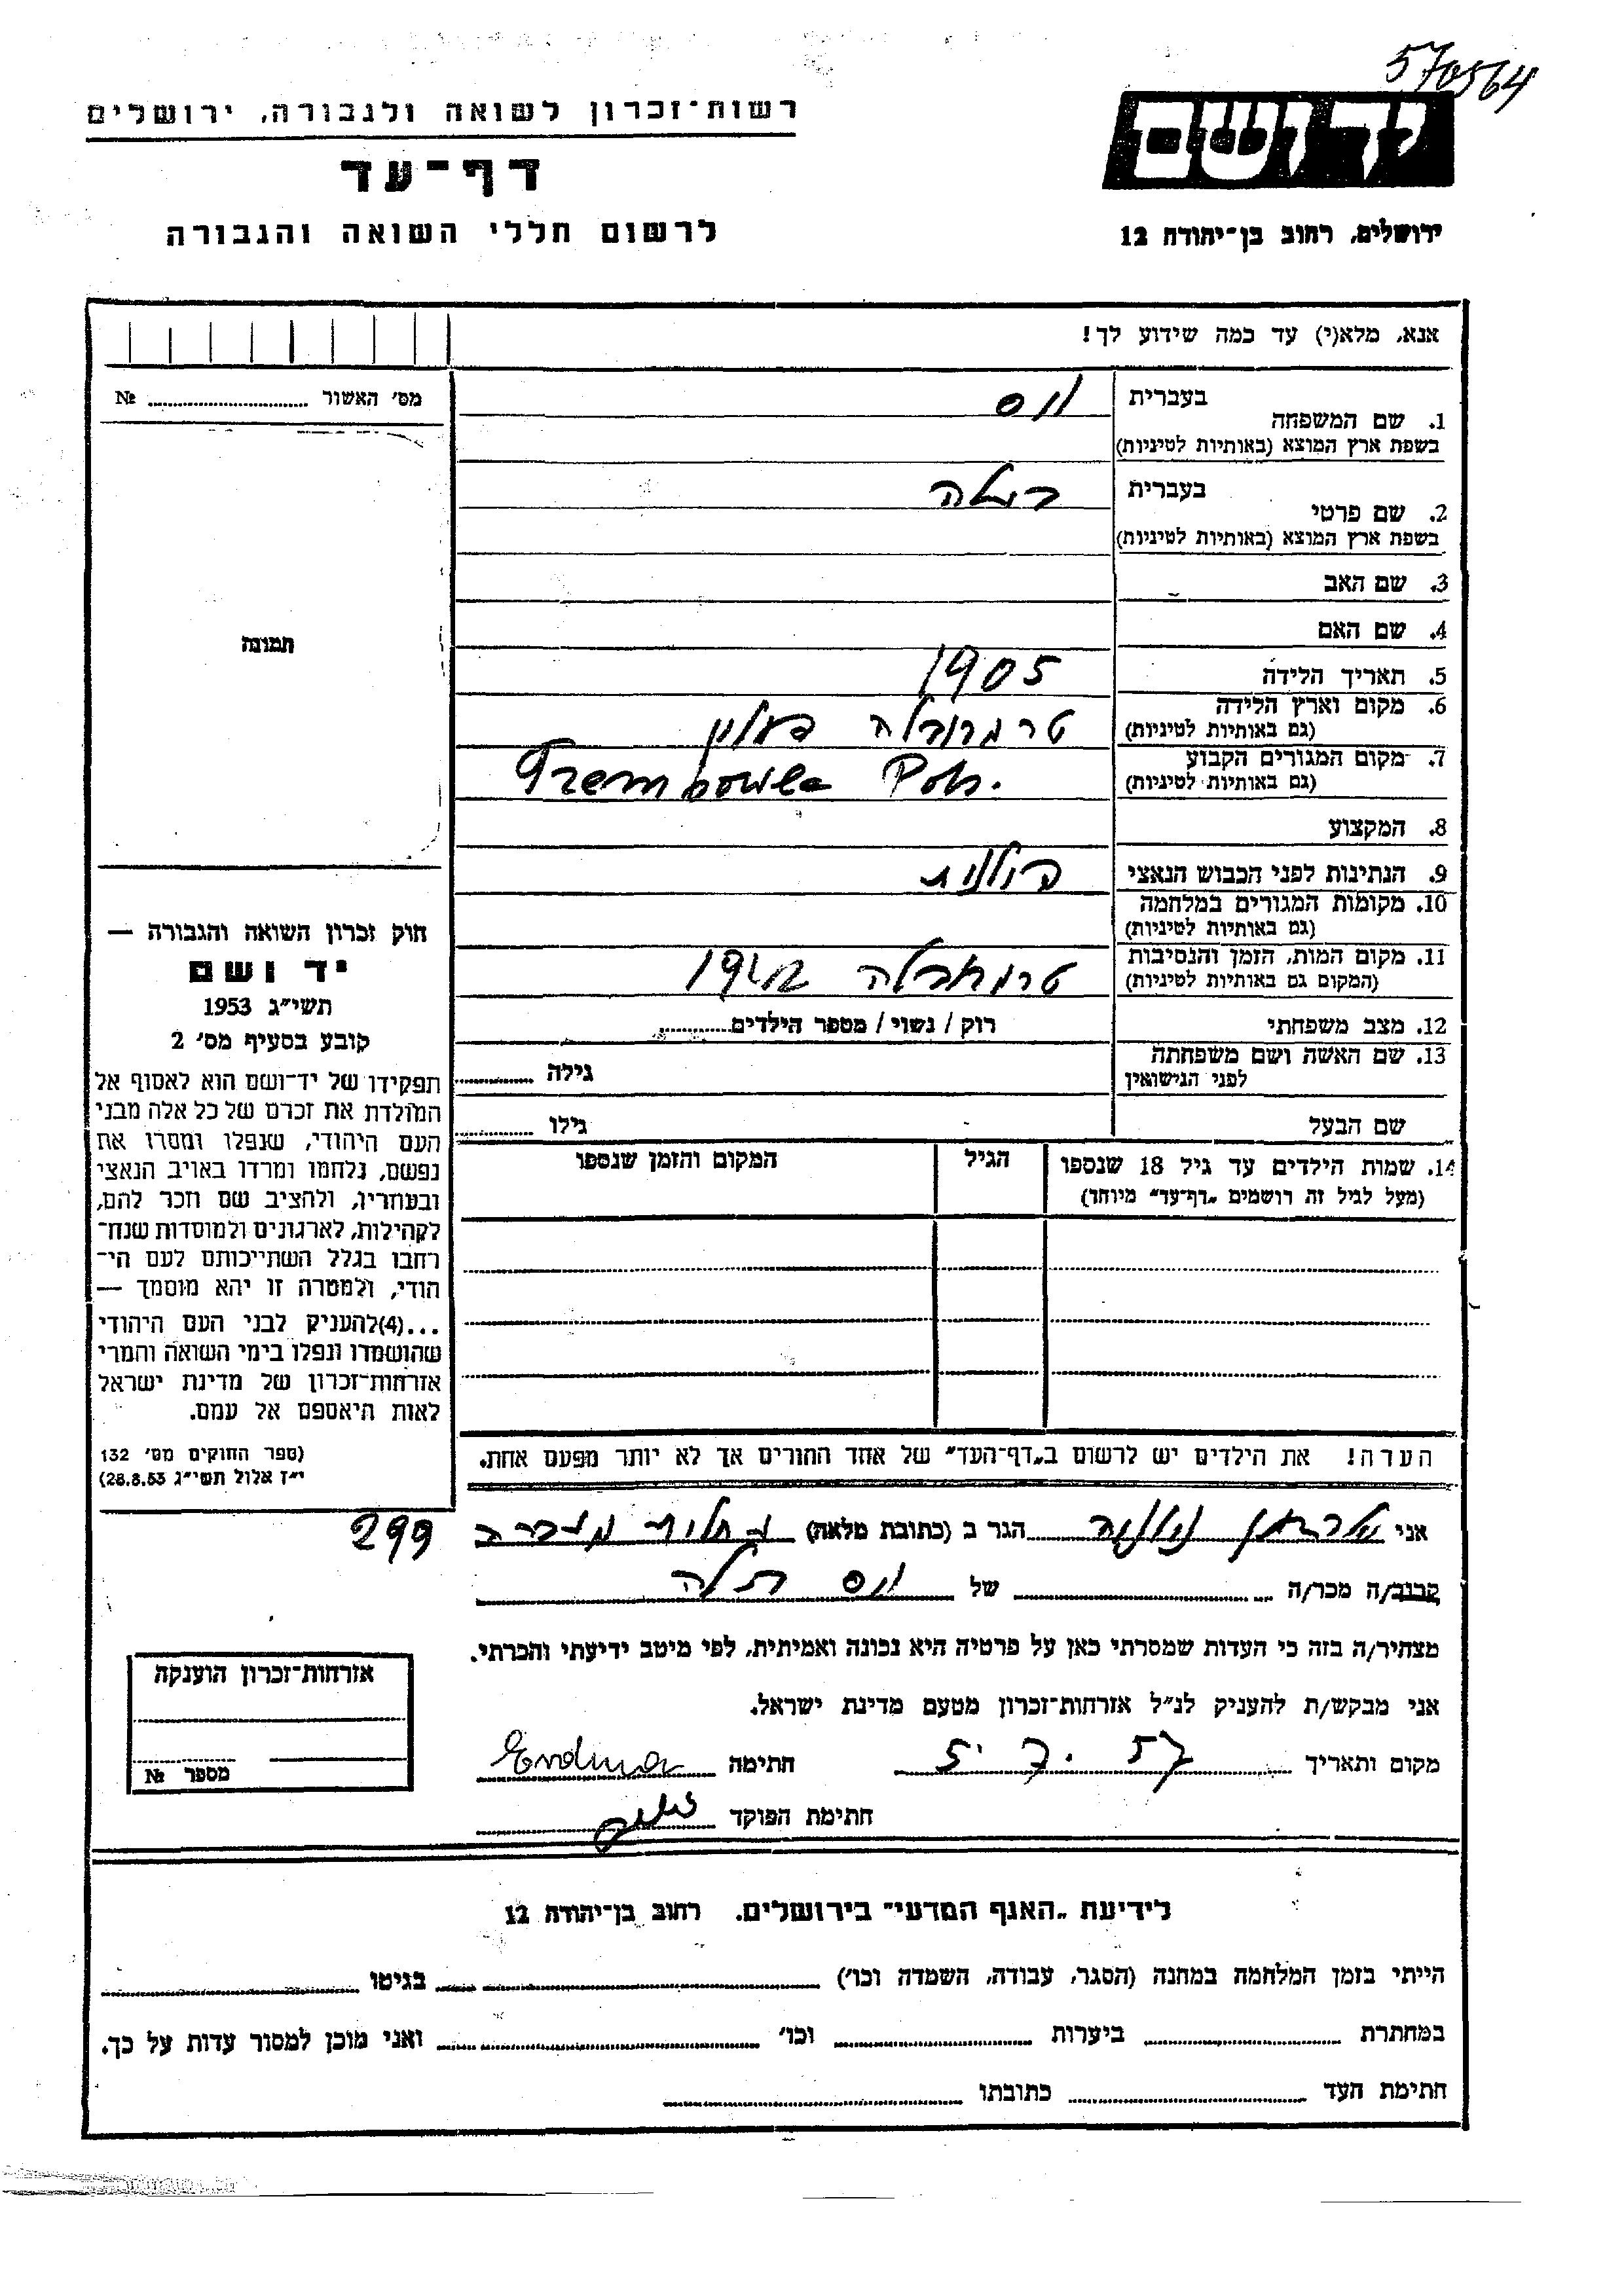 570564
רשות־זכרון לשואה ולגבורה, ירושלים
יד ושם
דף־עד
לרשום חללי השואה והגבורה
ירושלים, רחוב בן־יהודה 12
אנא, מלא(י) עד כמה שידוע לך!
מס׳ האשור № 
1. שם המשפחה בעברית
ווס
בשפת ארץ המוצא (באותיות לטיניות)
2. שם פרטי בעברית
בשפת ארץ המוצא (באותיות לטיניות)
3. שם האב
4. שם האם
תמונה
5. תאריך הלידה 1905
6. מקום וארץ הלידה (גם באותיות לטיניות)
טרמבובלה פולין
7. מקום המגורים הקבוע (גם באותיות לטיניות)
Trembowla Pol.
8. המקצוע
9. הנתינות לפני הכבוש הנאצי פולנית
10. מקומות המגורים במלחמה (גם באותיות לטיניות)
11. מקום המות, הזמן והנסיבות (המקום גם באותיות לטיניות)
טרמבובלה 1942
12. מצב משפחתי רוק / נשוי / מספר הילדים
13. שם האשה ושם משפחתה לפני הנישואין גילה
שם הבעל גילו
14. שמות הילדים עד גיל 18 שנספו (מעל לגיל זה רושמים „דף־עד״ מיוחד) הגיל המקום והזמן שנספו
חוק זכרון השואה והגבורה —
יד ושם
תשי״ג 1953
קובע בסעיף מס׳ 2
תפקידו של יד־ושם הוא לאסוף אל
המולדת את זכרם של כל אלה מבני
העם היהודי, שנפלו ומסרו את
נפשם, נלחמו ומרדו באויב הנאצי
ובעוזריו, ולהציב שם וזכר להם,
לקהילות, לארגונים ולמוסדות שנח־
רבו בגלל השתייכותם לעם הי־
הודי, ולמטרה זו יהא מוסמך —
...(4)להעניק לבני העם היהודי
שהושמדו ונפלו בימי השואה והמרי
אזרחות־זכרון של מדינת ישראל
לאות היאספם אל עמם.
(ספר החוקים מס׳ 132
י״ז אלול תשי״ג 28.8.53)
הערה! את הילדים יש לרשום ב„דף־העד״ של אחד ההורים אך לא יותר מפעם אחת.
אני הגר ב (כתובת מלאה)
299
קרוב/ה מכר/ה של ווס
מצהיר/ה בזה כי העדות שמסרתי כאן על פרטיה היא נכונה ואמיתית, לפי מיטב ידיעתי והכרתי.
אני מבקש/ת להעניק לנ״ל אזרחות־זכרון מטעם מדינת ישראל.
מקום ותאריך 5.7.57 חתימה
חתימת הפוקד
אזרחות־זכרון הוענקה
מספר №
לידיעת „האגף המדעי״ בירושלים. רחוב בן־יהודה 12
הייתי בזמן המלחמה במחנה (הסגר, עבודה, השמדה וכו׳) בגיטו
במחתרת ביערות וכו׳ ואני מוכן למסור עדות על כך.
חתימת העד כתובתו